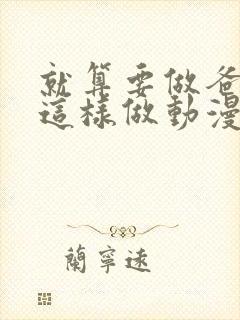 就算要做爸
這樣做動漫
蘭寧遠